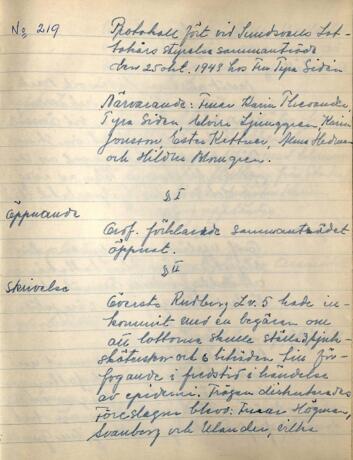 No 219
Protokoll fört vid Sundsvalls Lot-
takårs styrelsesammanträde
den 25 okt. 1943 hos Fru Tyra Sidén
Närvarande: Fruar Karin Theorander,
Tyra Sidén Elvira Ljunggren, Karin
Jonsson, Ester Kettner, Alma Hedman
och Hildur Blomgren.
§ I
Öppnande
Ordf. förklarade sammanträdet
öppnat.
§ II
Skrivelse
Överste Rudberg Lv. 5 hade in-
kommit med en begäran om
att lottorna skulle ställa sjuk-
sköterskor och 6 biträden till för-
fogande i fredstid i händelse
av epidemi. Frågan diskuterades
Föreslagna blevo: Fruar Högman,
Svanborg och Elander, vilka